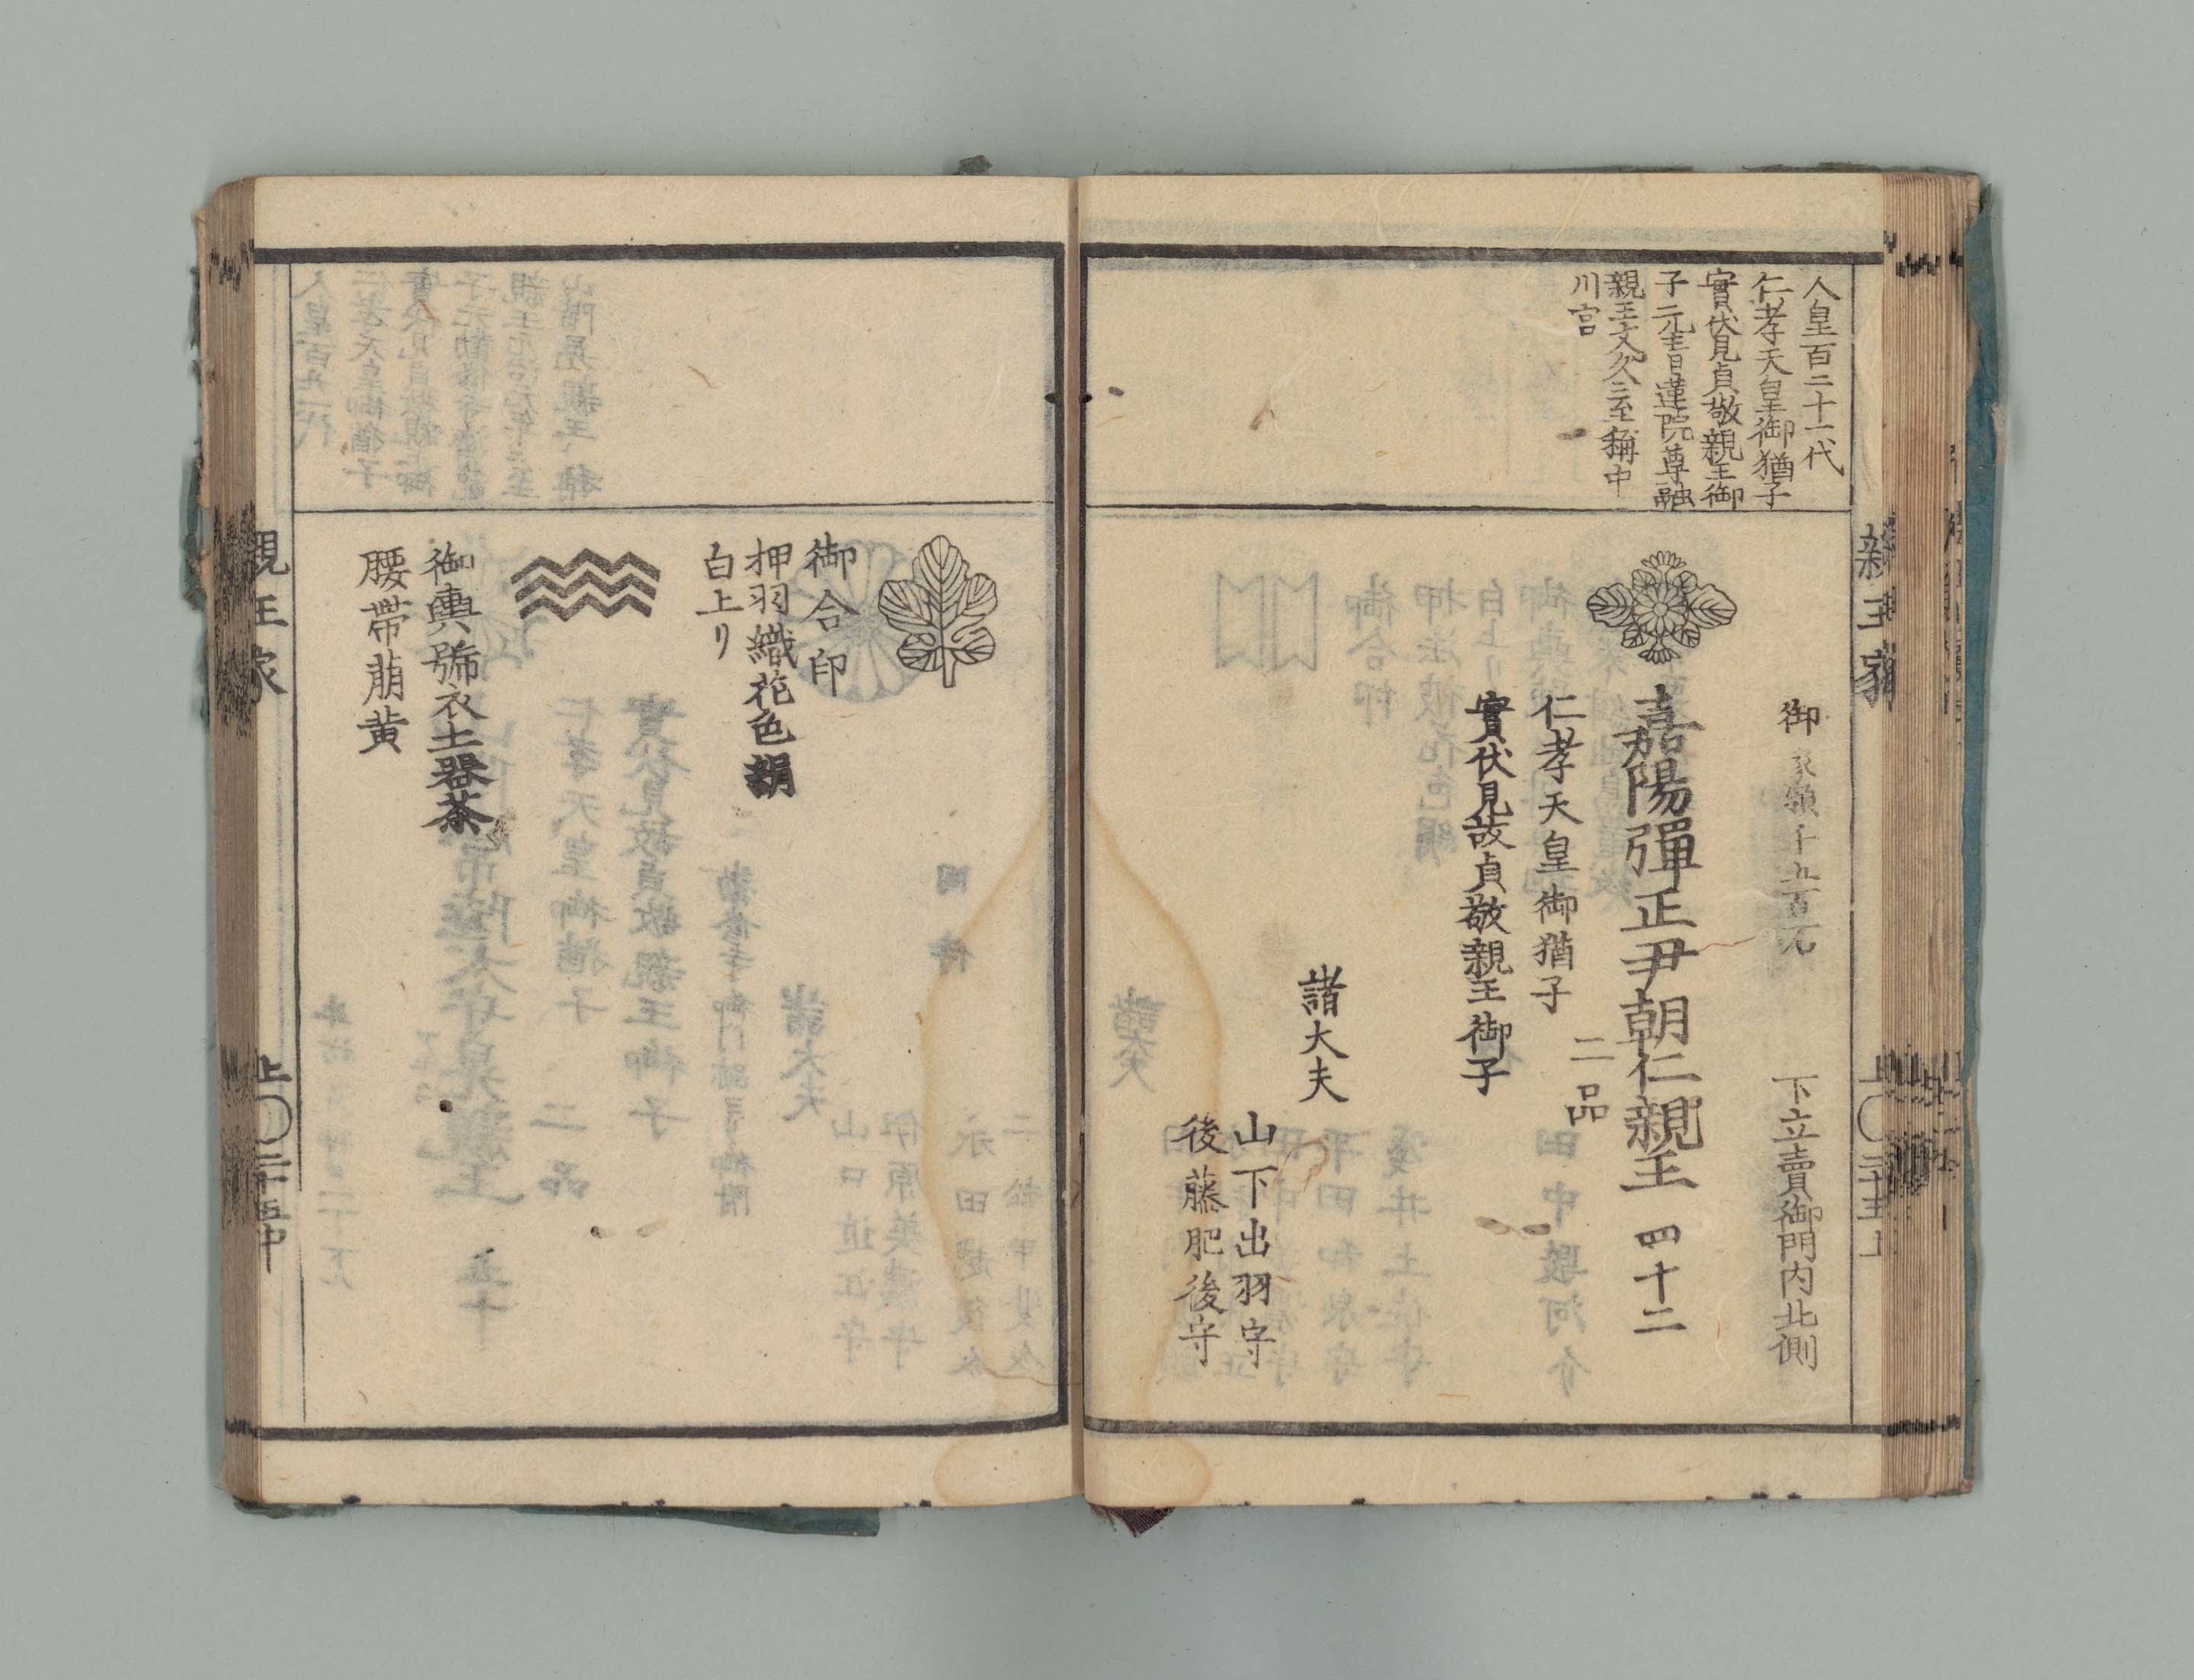 親王家
人皇百二十一代
仁孝天皇御猶子
實伏見貞敬親王御
子元青蓮院尊融
親王文久三至稱中
川宮
御家領千五百石
下立賣御門内北側
嘉陽彈正尹朝仁親王 四十二
二品
仁孝天皇御猶子
實伏見故貞敬親王御子
諸大夫
山下出羽守
後藤肥後守
御合印
押羽織花色絹
白上リ
御輿舁衣土器茶
腰帶萠黄
親王家
上〇二十五中